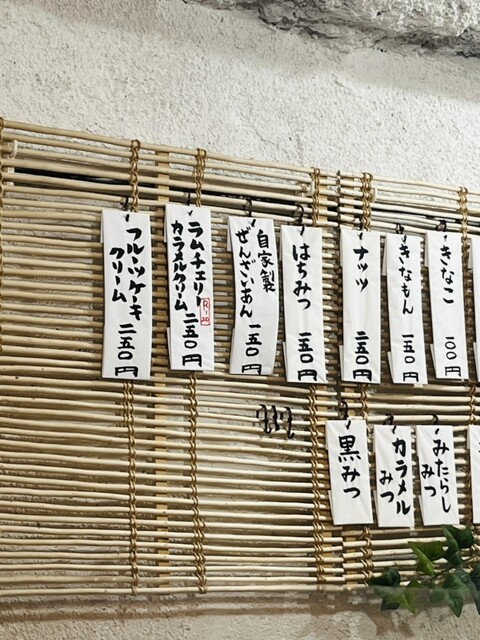 きなこ 一〇〇円
きなもん 一五〇円
ナッツ 二五〇円
はちみつ 一五〇円
自家製
ぜんざいあん
一五〇円
ラムチェリー
カラメルクリーム
二五〇円
フルーツケーキ
クリーム
二五〇円
みたらし
みつ
カラメル
みつ
黒みつ